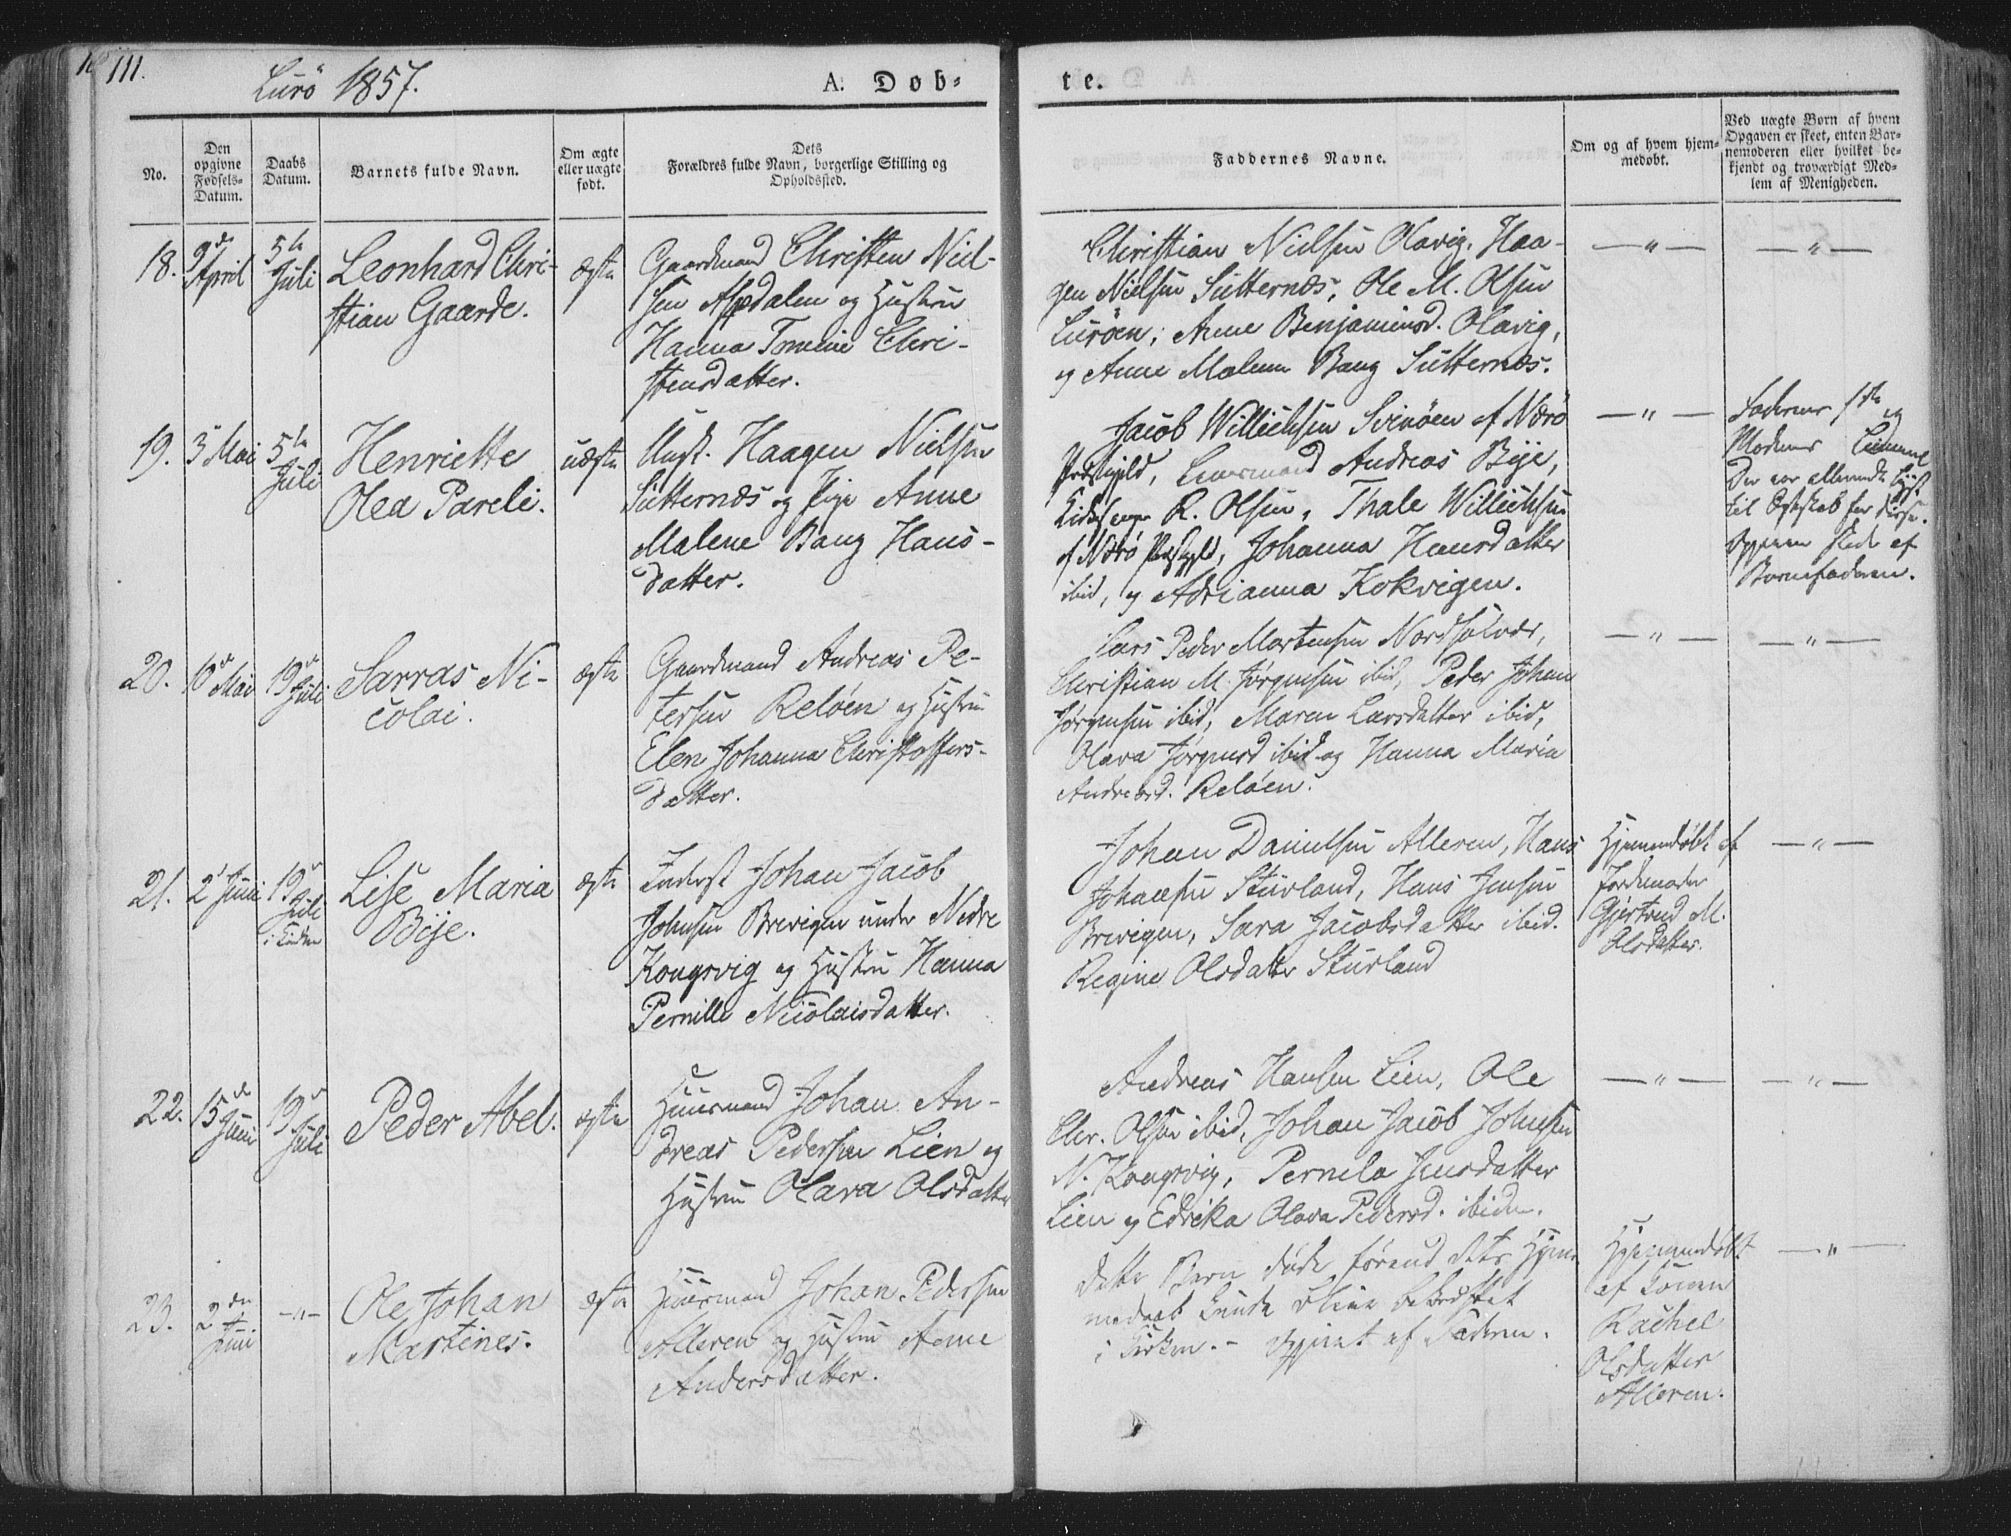 111.
Lurö 1857.
A. Døb-
te.
No.
Den
opgivne
Fødsels-
Datum.
Daabs
Datum.
Barnets fulde Navn.
Om ægte
eller uægte
født.
Dets
Forældres fulde Navn, borgerlige Stilling og
Opholdssted.
Faddernes Navne.
Om og af hvem hjem-
medøbt.
Ved uægte Børn af hvem
Opgaven er skeet, enten Bar-
nemoderen eller hvilket be-
kjendt og troværdigt Med-
lem af Menigheden.
18.
9de
April
5te
Juli
Leonhard Chri-
stian Gaarde.
ægte
Gaardmand Christen Niel-
sen Aspdalen og Hustru
Hanna Tomine Chri-
stensdatter.
Christian Nielsen Olavig, Haa-
gen Nielsen Sütternæs, Ole M. Olsen
Luröen, Anne Benjaminsd. Olavig,
og Anne Malene Bang Sütternæs.
— " —
— " —
19.
3 Mai
5te
Juli
Henriette
Olea Pareli.
uægte
Ungk. Haagen Nielsen
Sütternæs og Pige Anne
Malene Bang Hans-
datter.
Jacob Willichsen Svinöen af Nærö
Præstegjeld, Lensmand Andreas Bije,
Kirkesanger R. Olsen, Thale Willichsen
af Nærö Præstgjld, Johanna Hansdatter
ibid, og Adrianna Kokvigen.
— " —
Faderens 1ste og
Moderens
Der var allerede lyst
til Ægteskab for disse.
Opgaven skede af
Barnefaderen.
20.
10de Mai
19de Juli
Sarras Ni-
colai.
ægte
Gaardmand Andreas Pe-
tersen Relöen og Hustru
Elen Johanna Christoffers-
datter.
Lars Peder Martensen Nordsolvær,
Christian M. Jörgensen ibid, Peder Johan
Jörgensen ibid, Maren Larsdatter ibid,
Olava Jörgensd ibid og Hanna Maria
Andreasd. Relöen.
— " —
— " —
21.
2 Juni
19de
Juli
i Kirken
Lise Maria
Bije.
ægte
Inderst Johan Jacob
Johnsen Brevigen under Nedre
Kongsvig og Hustru Hanna
Pernille Nicolaisdatter.
Johan Danielsen Alleren, Hans
Johansen Stuvland, Hans Jensen
Brevigen, Sara Jacobsdatter ibid.
Regine Olsdatter Stuvland
Hjemmedöbt af
Jordemoder
Gjertrud M.
Olsdatter.
— " —
22.
15de
Juni
19de
Juli
Peder Abel.
ægte
Huusmand Johan An-
dreas Pedersen Lien og
Hustru Olava Olsdatter
Andreas Hansen Lien, Ole
Chr. Olsen ibid, Johan Jacob Johnsen
N. Kongsvig, Pernela Jensdatter
Lien og Edrika Olava Pedersd. ibidm.
— " —
— " —
23.
2den
Juni
— " —
Ole Johan
Martines.
ægte
Huusmand Johan Pedersen
Alleren og Hustru Anne
Andersdatter.
Dette Barn døde förend dets Hjem-
medaab kunde blive bekræftet
i Kirken. - Opgivet af Faderen.
Hjemmedöbt
af Konen
Rachel
Olsdatter
Alleren.
— " —